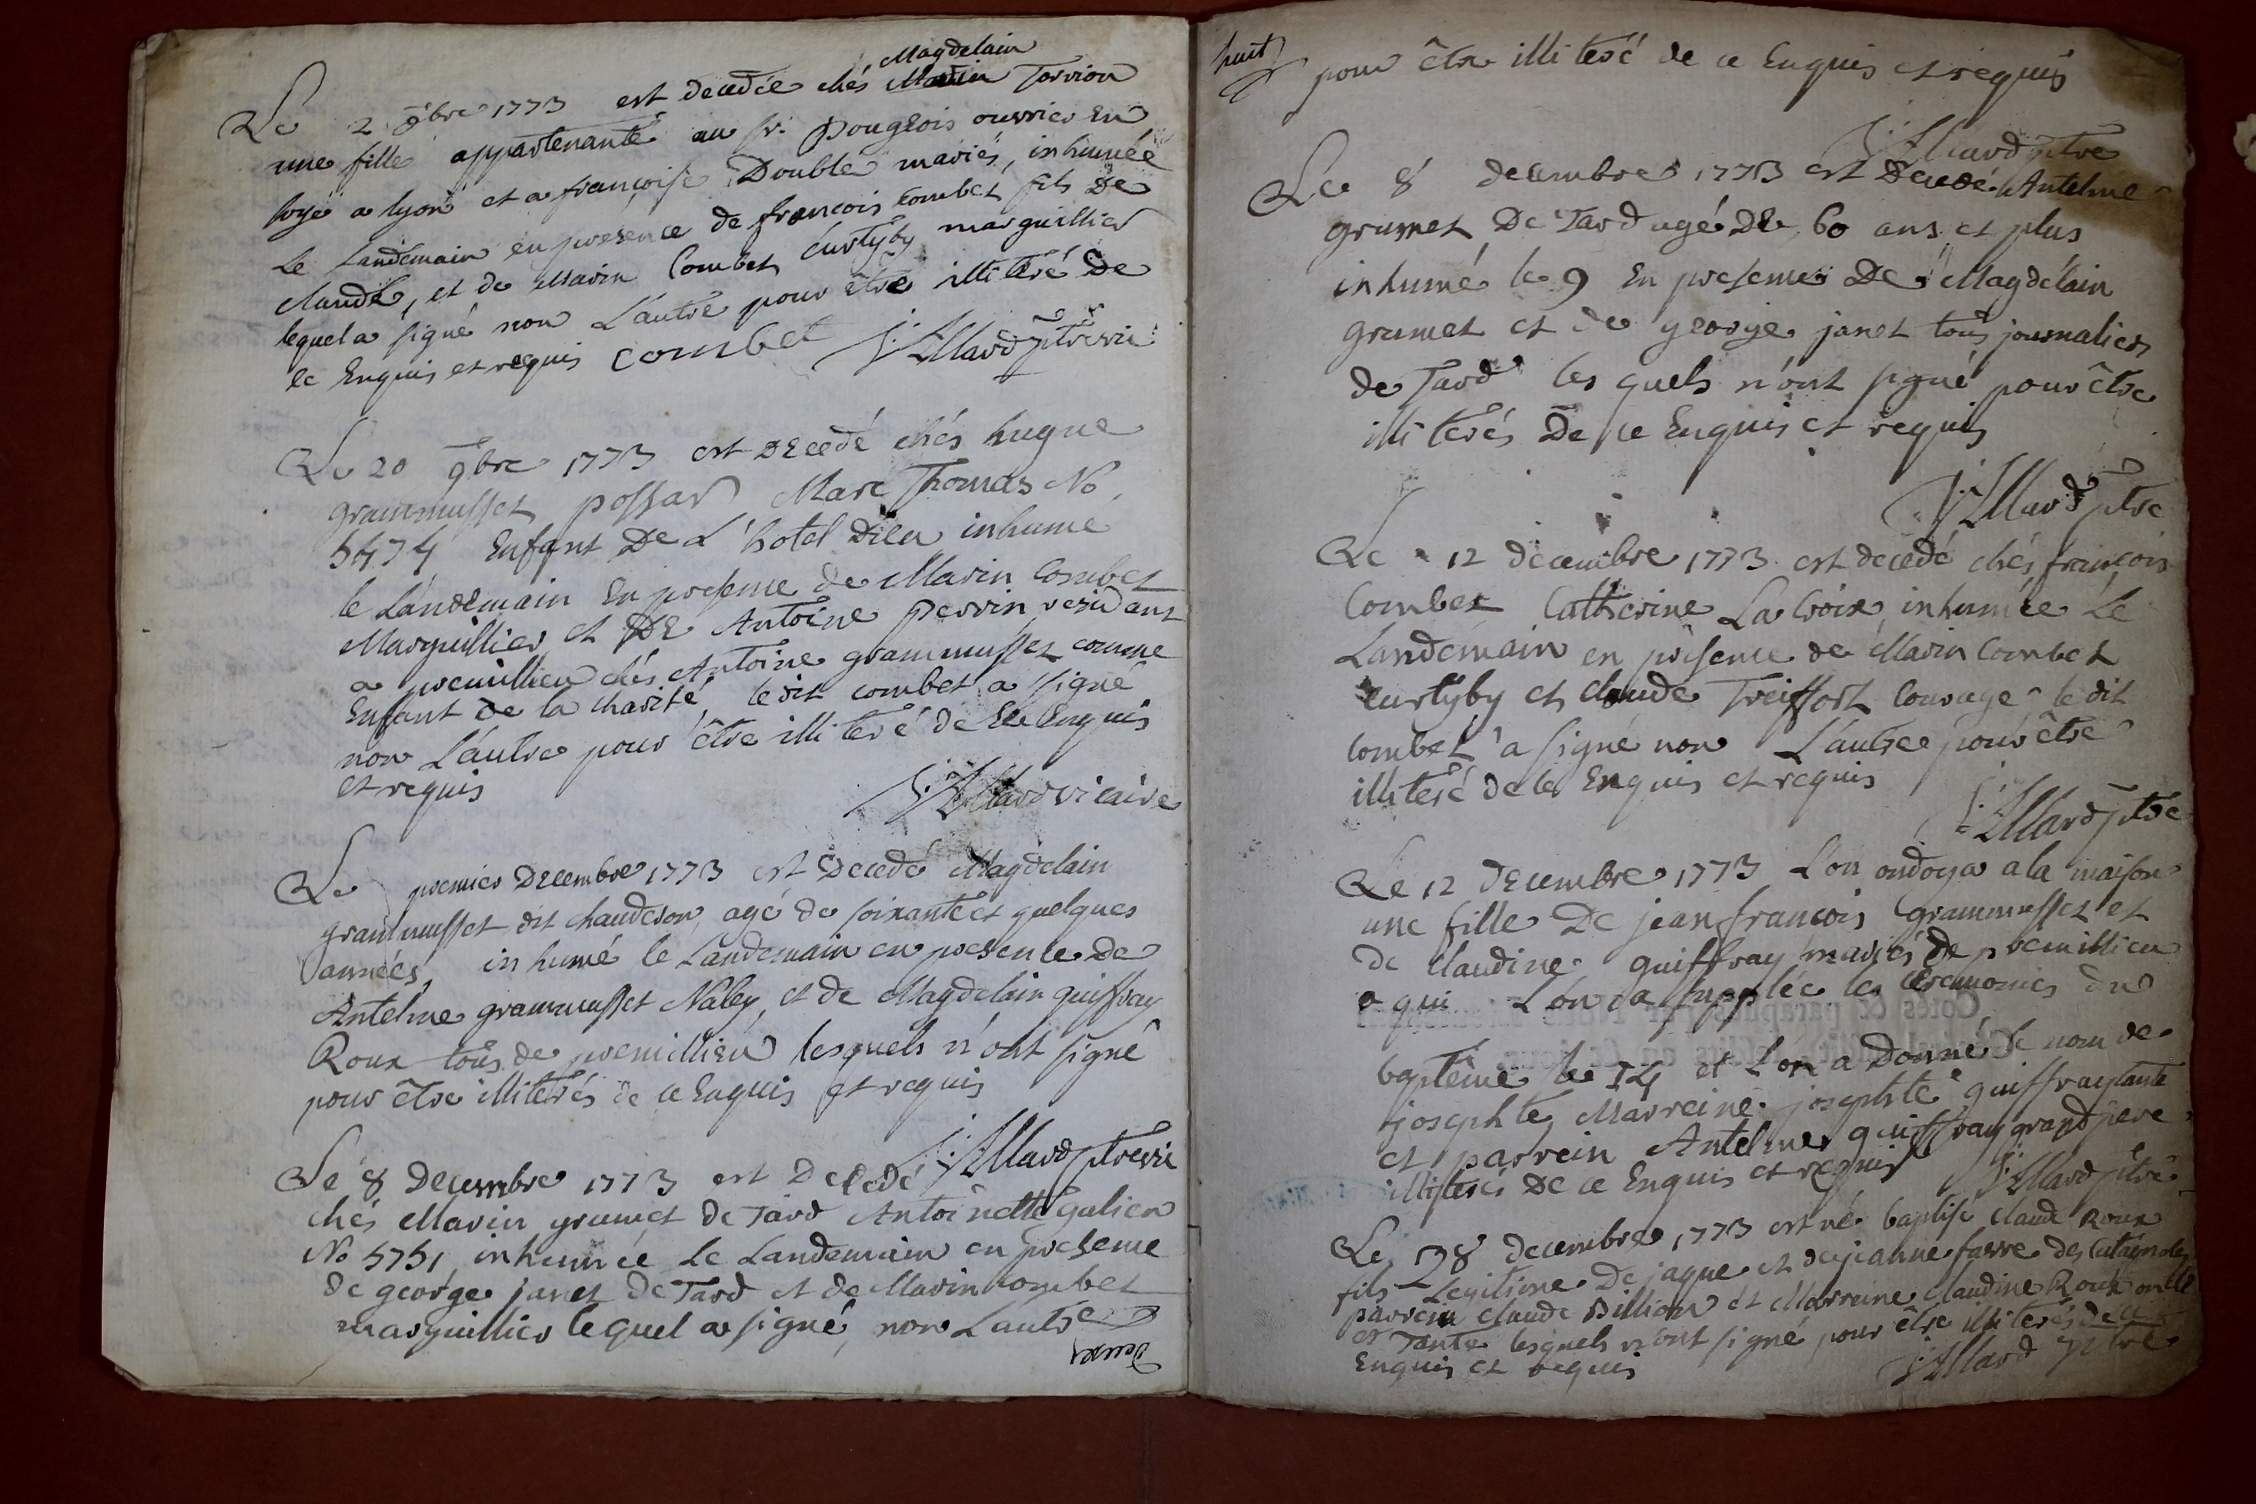 Magdelain
Le 2 8bre 1773 est decedée chés Marin Torvion
une fille appartenante au sr. Pougeois ouvrier en
soye a lyon et a françoise Double mariés, inhumée
Le Landemain en presence de françois Combet fils De
claude, et de Marin Combet Curtyby marguillier
lequel a signé non L'autre pour être illiteré De
ce Enquis et requis combet J: Allard ptre vic:
Le 20 9bre 1773 est DEcedé chés hugue
grammusset possar Marc Thomas No.
5474 Enfant De L'hotel Dieu inhume
le Landemain En presence de Marin Combet
Marguillier et DE Antoine perrin residant
a premillieu chés Antoine grammusset comme
Enfant de la charité, ledit combet a signé
non L'autre pour être illiteré de Ce Enquis
et requis
J: Allard vicaire
Le premier DEcembre 1773 est Decedé Magdelain
grammusset dit chauderon agé de soixante et quelques
années, inhumé le Landemain en presence de
Antelme grammusset Naley, et de Magdelain quiffray
Roux tous de premillieu lesquels n'ont signé
pour être illiterés de ce Enquis et requis
J: Allard ptre vic
Le 8 Decembre 1773 est Decedé
chés Marin grumet de Tard Antoinette galien
No 5751 inhumée Le Landemain en presence
de george janet de Tard et de Marin combet
marguillier lequel a signé, non L'autre
combet
huit
pour être illiteré de ce Enquis et requis
J: Allard ptre
Le 8 decembre 1773 est Decedé Antelme
grumet De Tard agé DE 60 ans et plus
inhumé le 9 En presence De Magdelain
grumet et de george janet tous journaliers
de Tard les quels n'ont signé pour être
illiterés De ce Enquis et requis
J: Allard ptre
Le 12 decembre 1773 est decedé chés françois
Combet Catherine La Croix inhumée Le
Landemain en presence de Marin Combet
curtyby et claude Treiffort Courage le dit
combet a signé non L'autre pour être
illiteré de ce Enquis et requis
J: Allard ptre
Le 12 DEcembre 1773 L'on ondoya a la maison
une fille De jean françois grammusset et
de Claudine quiffray mariés de premillieu
a qui L'on a supplée les Ceremonies du
baptême le 14 et L'on a Donné le nom de
josephte Marreine josephte quiffray tante
et parrein Antelme quiffray grand pere
illiterés De ce Enquis et requis J: Allard ptre
Le 28 decembre 1773 est né baptise claude Roux
fils Legitime De jaque et de jeanne favre des
parrein claude Billion et Marreine claudine Roux oncle
et Tante lesquels n'ont signé pour être illiterés de ce
Enquis et requis J: Allard ptre